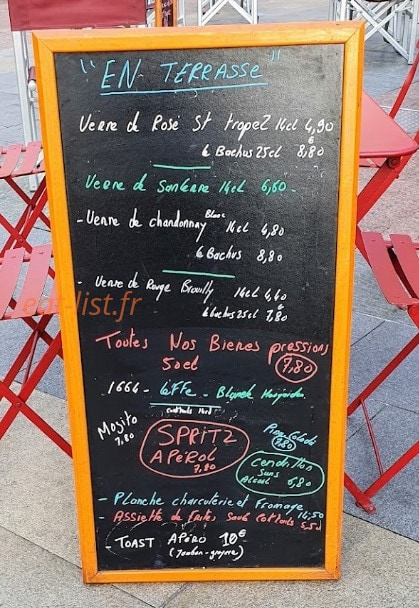 "EN TERRASSE"
Verre de Rosé St tropez 14cl 4,90
le Bachus 25cl 8,80
Verre de Sancerre 14cl 6,60
- Verre de chardonnay Blanc 14cl 4,80
le Bachus 8,80
- Verre de Rouge Brouilly 14cl 4,40
le bachus 25cl 7,80
eat-list.fr
Toutes Nos Bieres pressions
50cl 7,80
1664 - Leffe - Blanch
Mojito
7,80
SPRITZ
APÉROL
7,80
Pina Colada
7,80
Cendrillon
Sans
Alcool 6,80
- Planche charcuterie et Fromage 14,50
- Assiette de Frites Sauce 5,50
- TOAST APÉRO 10€
(Jambon-gruyère)